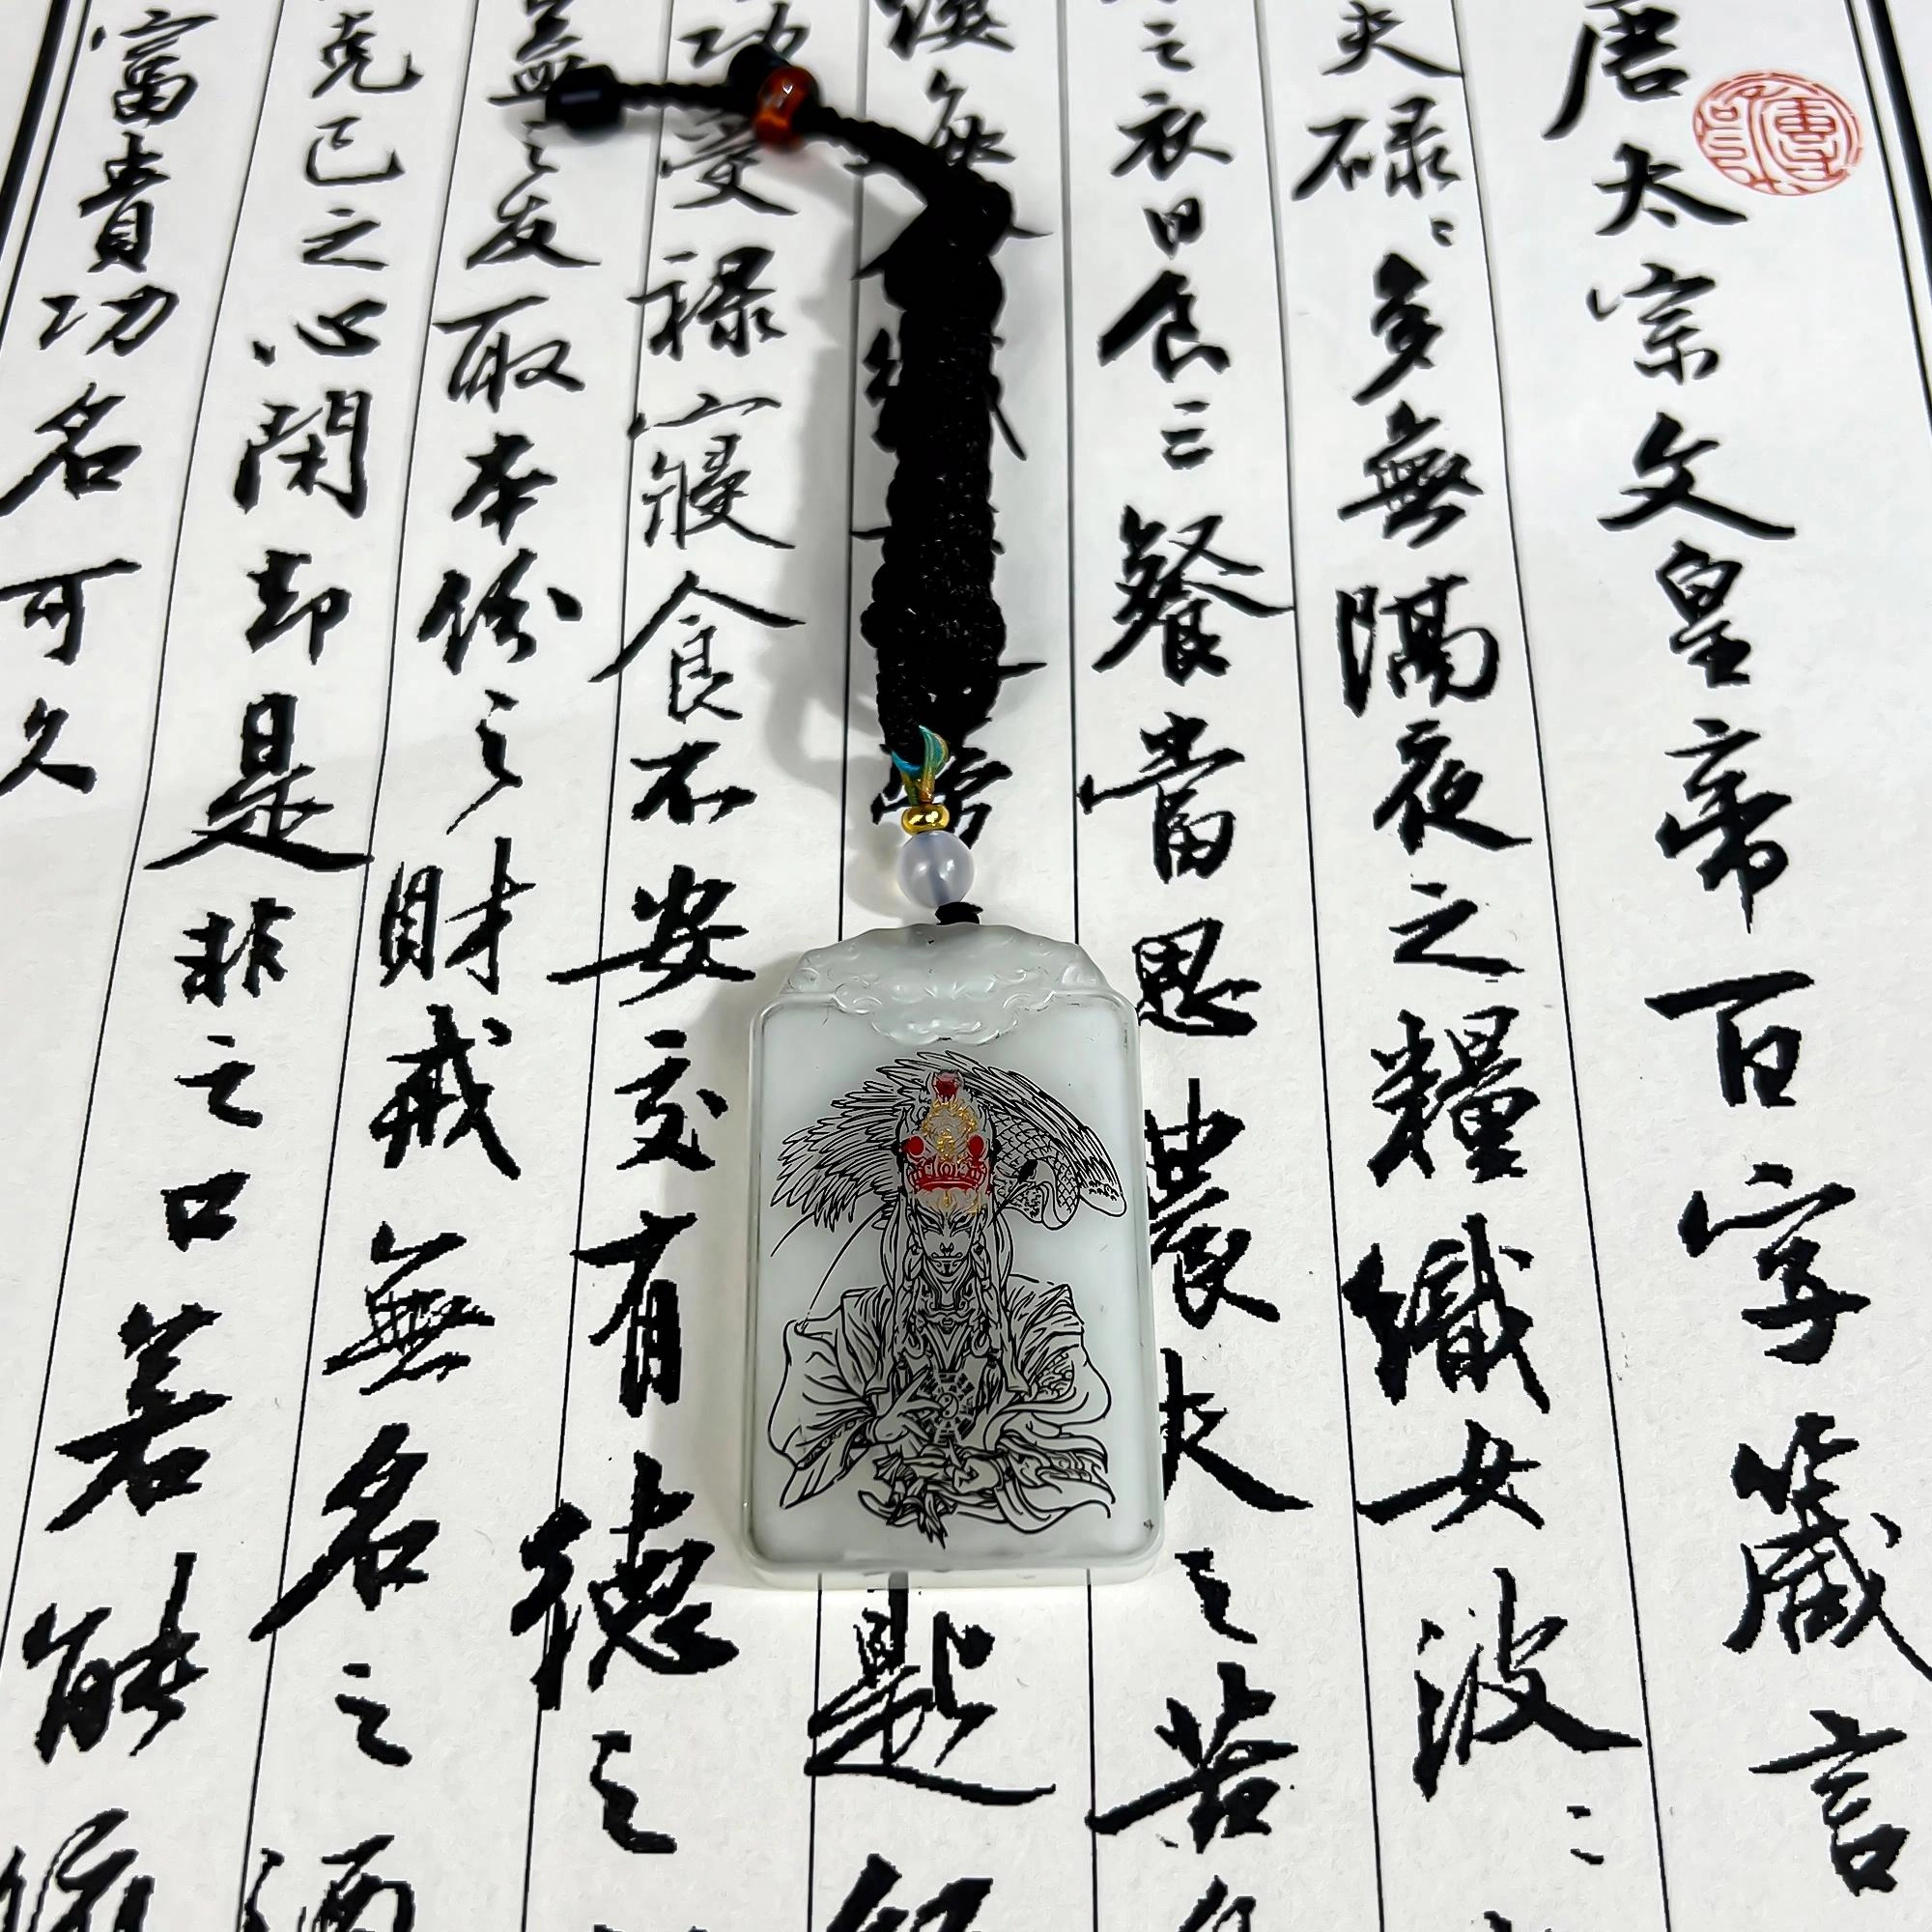 唐太宗文皇帝百字箴言
夫碌〻多無隔夜之糧織女波〻
之衣日食三餐當思農夫之苦
無
題
功受祿寢食不安交有德之
益之友取本份之財戒無名之酒
克己之心閑却是非之口若能依
富貴功名可久